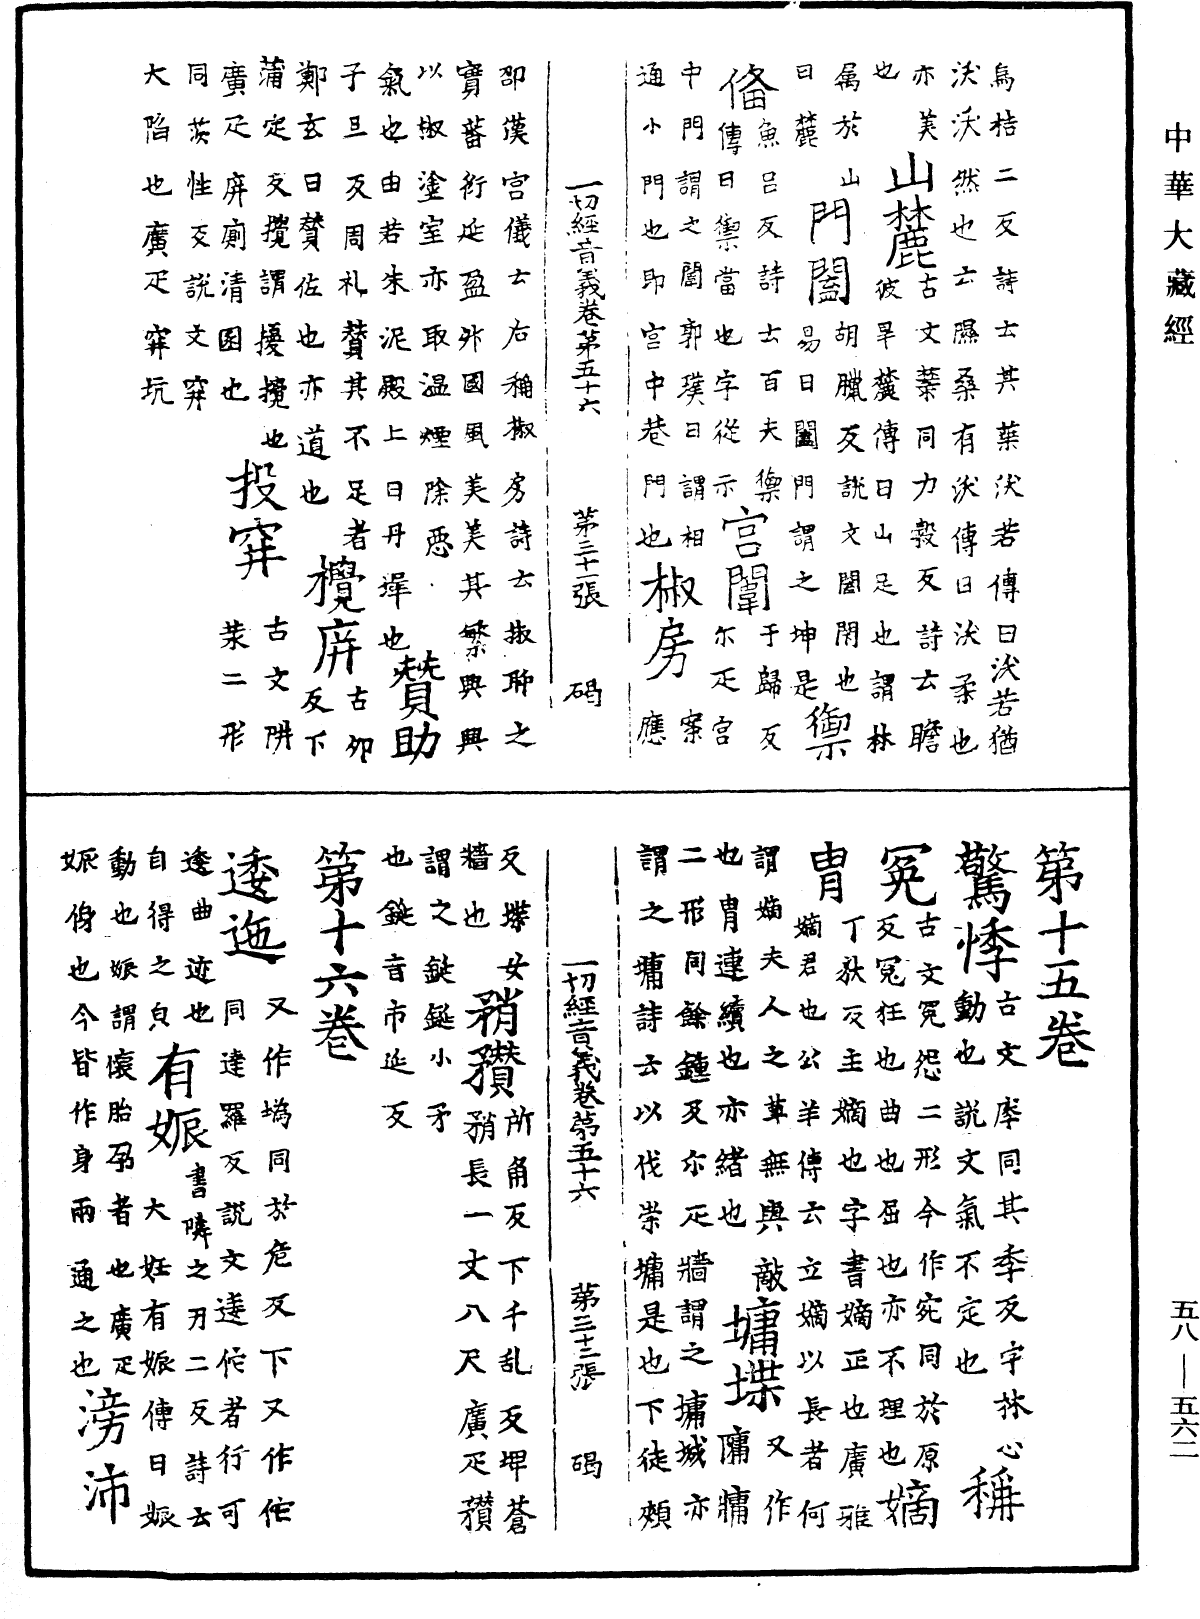 中華大藏經
烏桔二反詩士其葉沃若傳曰沃若猶
沃沃然也云隰桑有沃傳曰沃柔也
亦美 古文蓁同力穀反詩云瞻
也 山麓 彼旱麓傳曰山足也謂林
属於山 門闔 胡臘反説文闔閇也
曰麓 易曰闔門謂之坤是 禦
俻 魚呂反詩士百夫禦 于歸反
傳曰禦當也字從示 宫闈 尒疋宫
中門謂之闈郭璞曰謂相 案
通小門也即宫中巷門也 椒房 應
一切經音義卷第五十六 第三十一張 碣
卲漢宫儀云右稱椒房詩云椒聊之
實蕃衍延盈升國風美美其繁興興
以椒塗室亦取温煙除惡
氣也由若朱泥殿上曰丹墀也 贊助
子旦反周礼贊其不足者
鄭玄曰贊佐也亦道也 攪庰 古卯反下
蒲定反攪謂擾攪也
廣疋庰廁清圂也 投穽 古文阱
同茨性反説文穽 葉二形
大陷也廣疋穽坑
第十五卷
驚悸 古文㾕同其季反字林心
動也説文氣不定也 稱
冤 古文寃怨二形今作宛同於原
反冤枉也曲也屈也亦不理也 嫡
胄 丁狄反主嫡也字書嫡正也廣雅
嫡君也公羊傳云立嫡以長者何
謂嫡夫人之草無輿敵 又作
也胄連續也亦緒也 墉堞 𤗲牗
二形同餘鍾反尒疋牆謂之墉城亦
謂之墉詩云以伐崇墉是也下徒頰
一切經音義卷第五十六 第三十二張 碣
反堞女 所角反下千乱反埤蒼
牆也 矟䂎 矟長一丈八尺廣疋䂎
謂之鋋鋋小矛
也鋋音市延反
第十六卷
逶迤 又作蝺同於危反下又作佗
同達羅反説文逶佗者行可
逶曲迹也 書隣之刃二反詩云
自得之皃 有娠 大妊有娠傳曰娠
動也娠謂懷胎孕者也廣疋
娠侽也今皆作身兩通之也 滂沛
五八—五六二